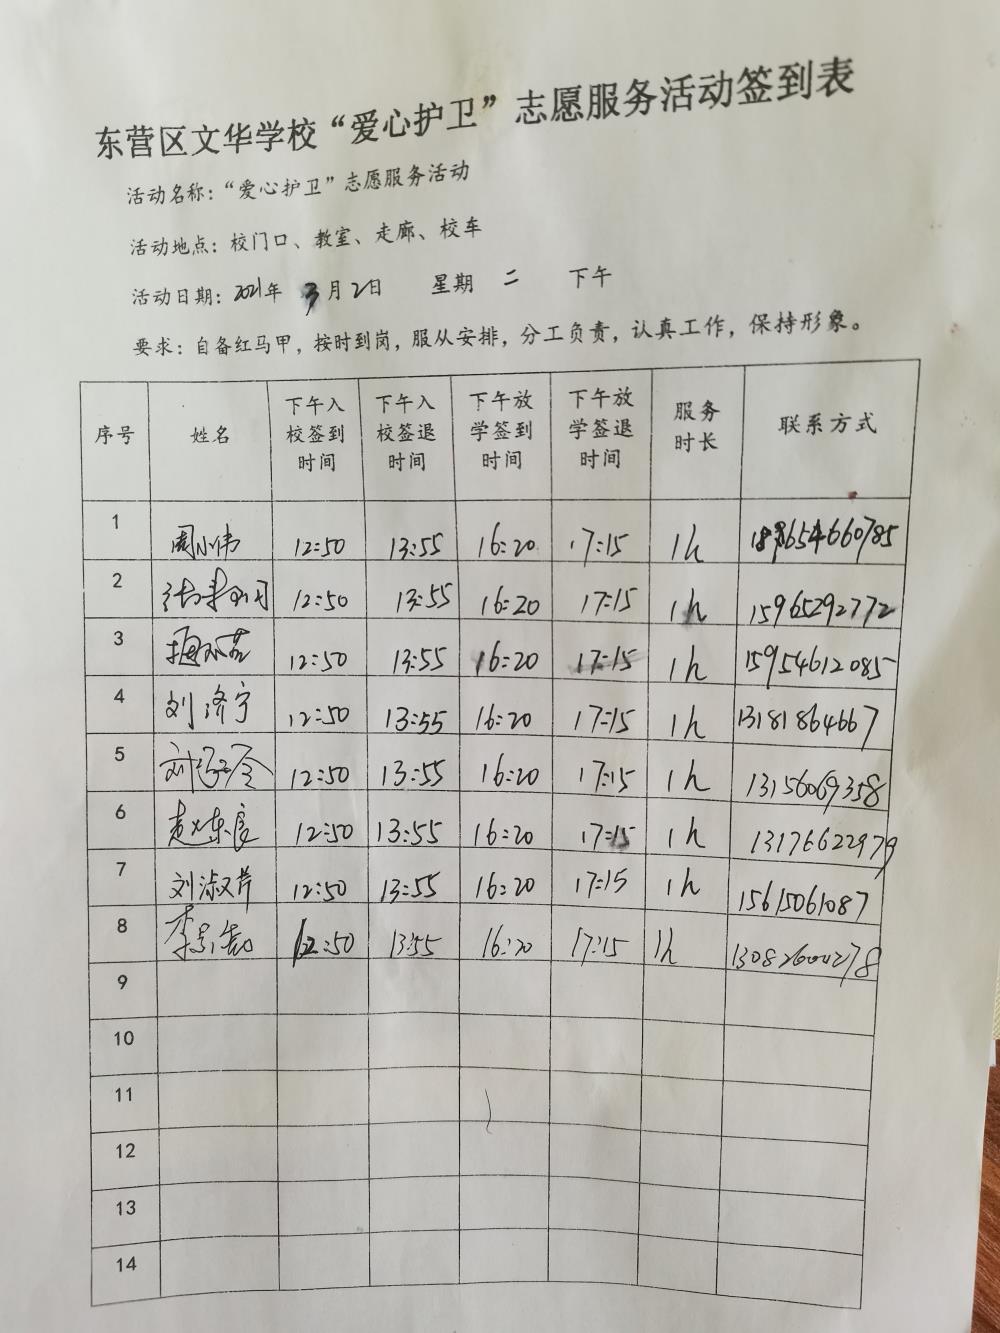 东营区文华学校“爱心护卫”志愿服务活动签到表
活动名称：“爱心护卫”志愿服务活动
活动地点：校门口、教室、走廊、校车
活动日期：2021年 3月2日 星期 二 下午
要求：自备红马甲，按时到岗，服从安排，分工负责，认真工作，保持形象。
序号 姓名 下午入校签到时间 下午入校签退时间 下午放学签到时间 下午放学签退时间 服务时长 联系方式
1 周小伟 12:50 13:55 16:20 17:15 1h
2 12:50 13:55 16:20 17:15 1h 15965292772
3 12:50 13:55 16:20 17:15 1h 15954612085
4 刘济宁 12:50 13:55 16:20 17:15 1h 13181864667
5 12:50 13:55 16:20 17:15 1h 13156069358
6 12:50 13:55 16:20 17:15 1h 13176622979
7 刘淑芹 12:50 13:55 16:20 17:15 1h 15615061087
8 12:50 13:55 16:20 17:15 1h
9
10
11
12
13
14